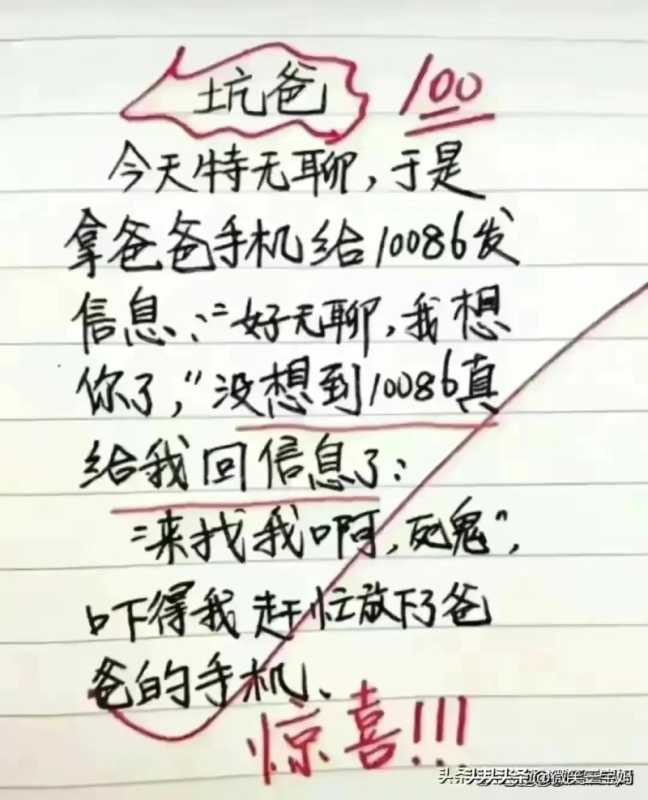 坑爸 100
今天特无聊,于是
拿爸爸手机给10086发
信息:“好无聊,我想
你了,”没想到10086真
给我回信息了:
“来找我啊,死鬼”,
吓得我赶忙放下了爸
爸的手机、
惊喜!!!